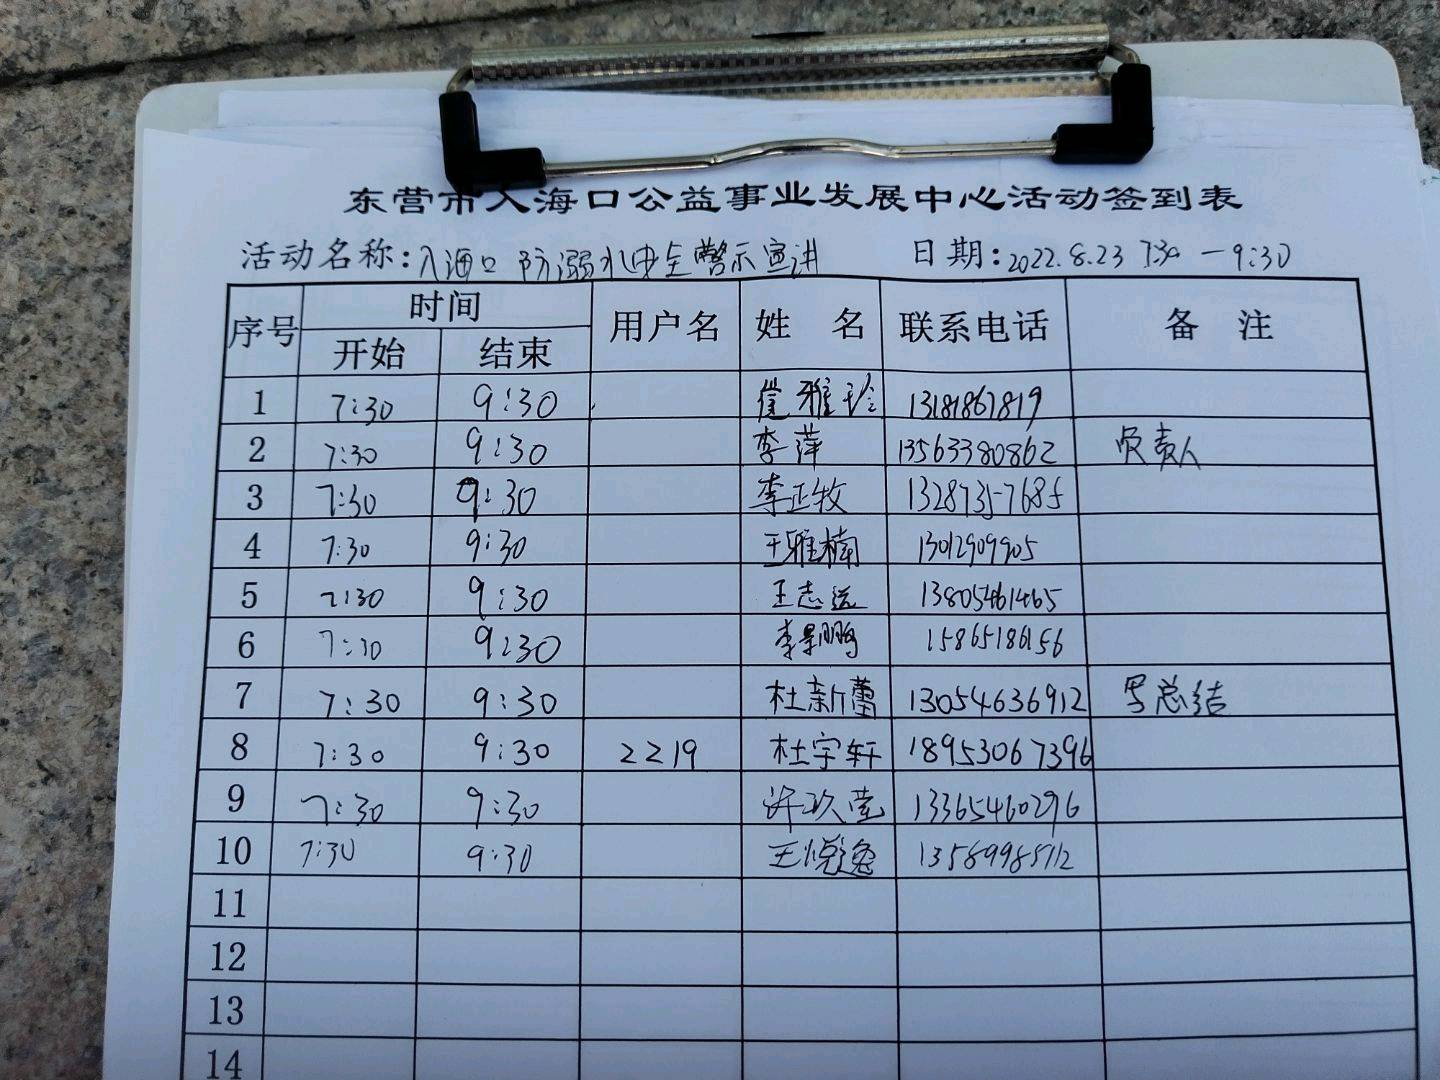 东营市入海口公益事业发展中心活动签到表
活动名称:入海口 防溺水安全警示宣讲 日期:2022.8.23 7:30 — 9:30
序号 时间 用户名 姓 名 联系电话 备 注
开始 结束
1 7:30 9:30 崔雅珍 13181867819
2 7:30 9:30 李萍 13563380862 负责人
3 7:30 9:30 李正牧 13287357685
4 7:30 9:30 王雅楠 13012909905
5 7:30 9:30 王志远 13805461465
6 7:30 9:30 李景鹏 15865186156
7 7:30 9:30 杜新蕾 13054636912 写总结
8 7:30 9:30 2219 杜宇轩 18953067396
9 7:30 9:30 许玖莹 13365460296
10 7:30 9:30 王悦逸
11
12
13
14